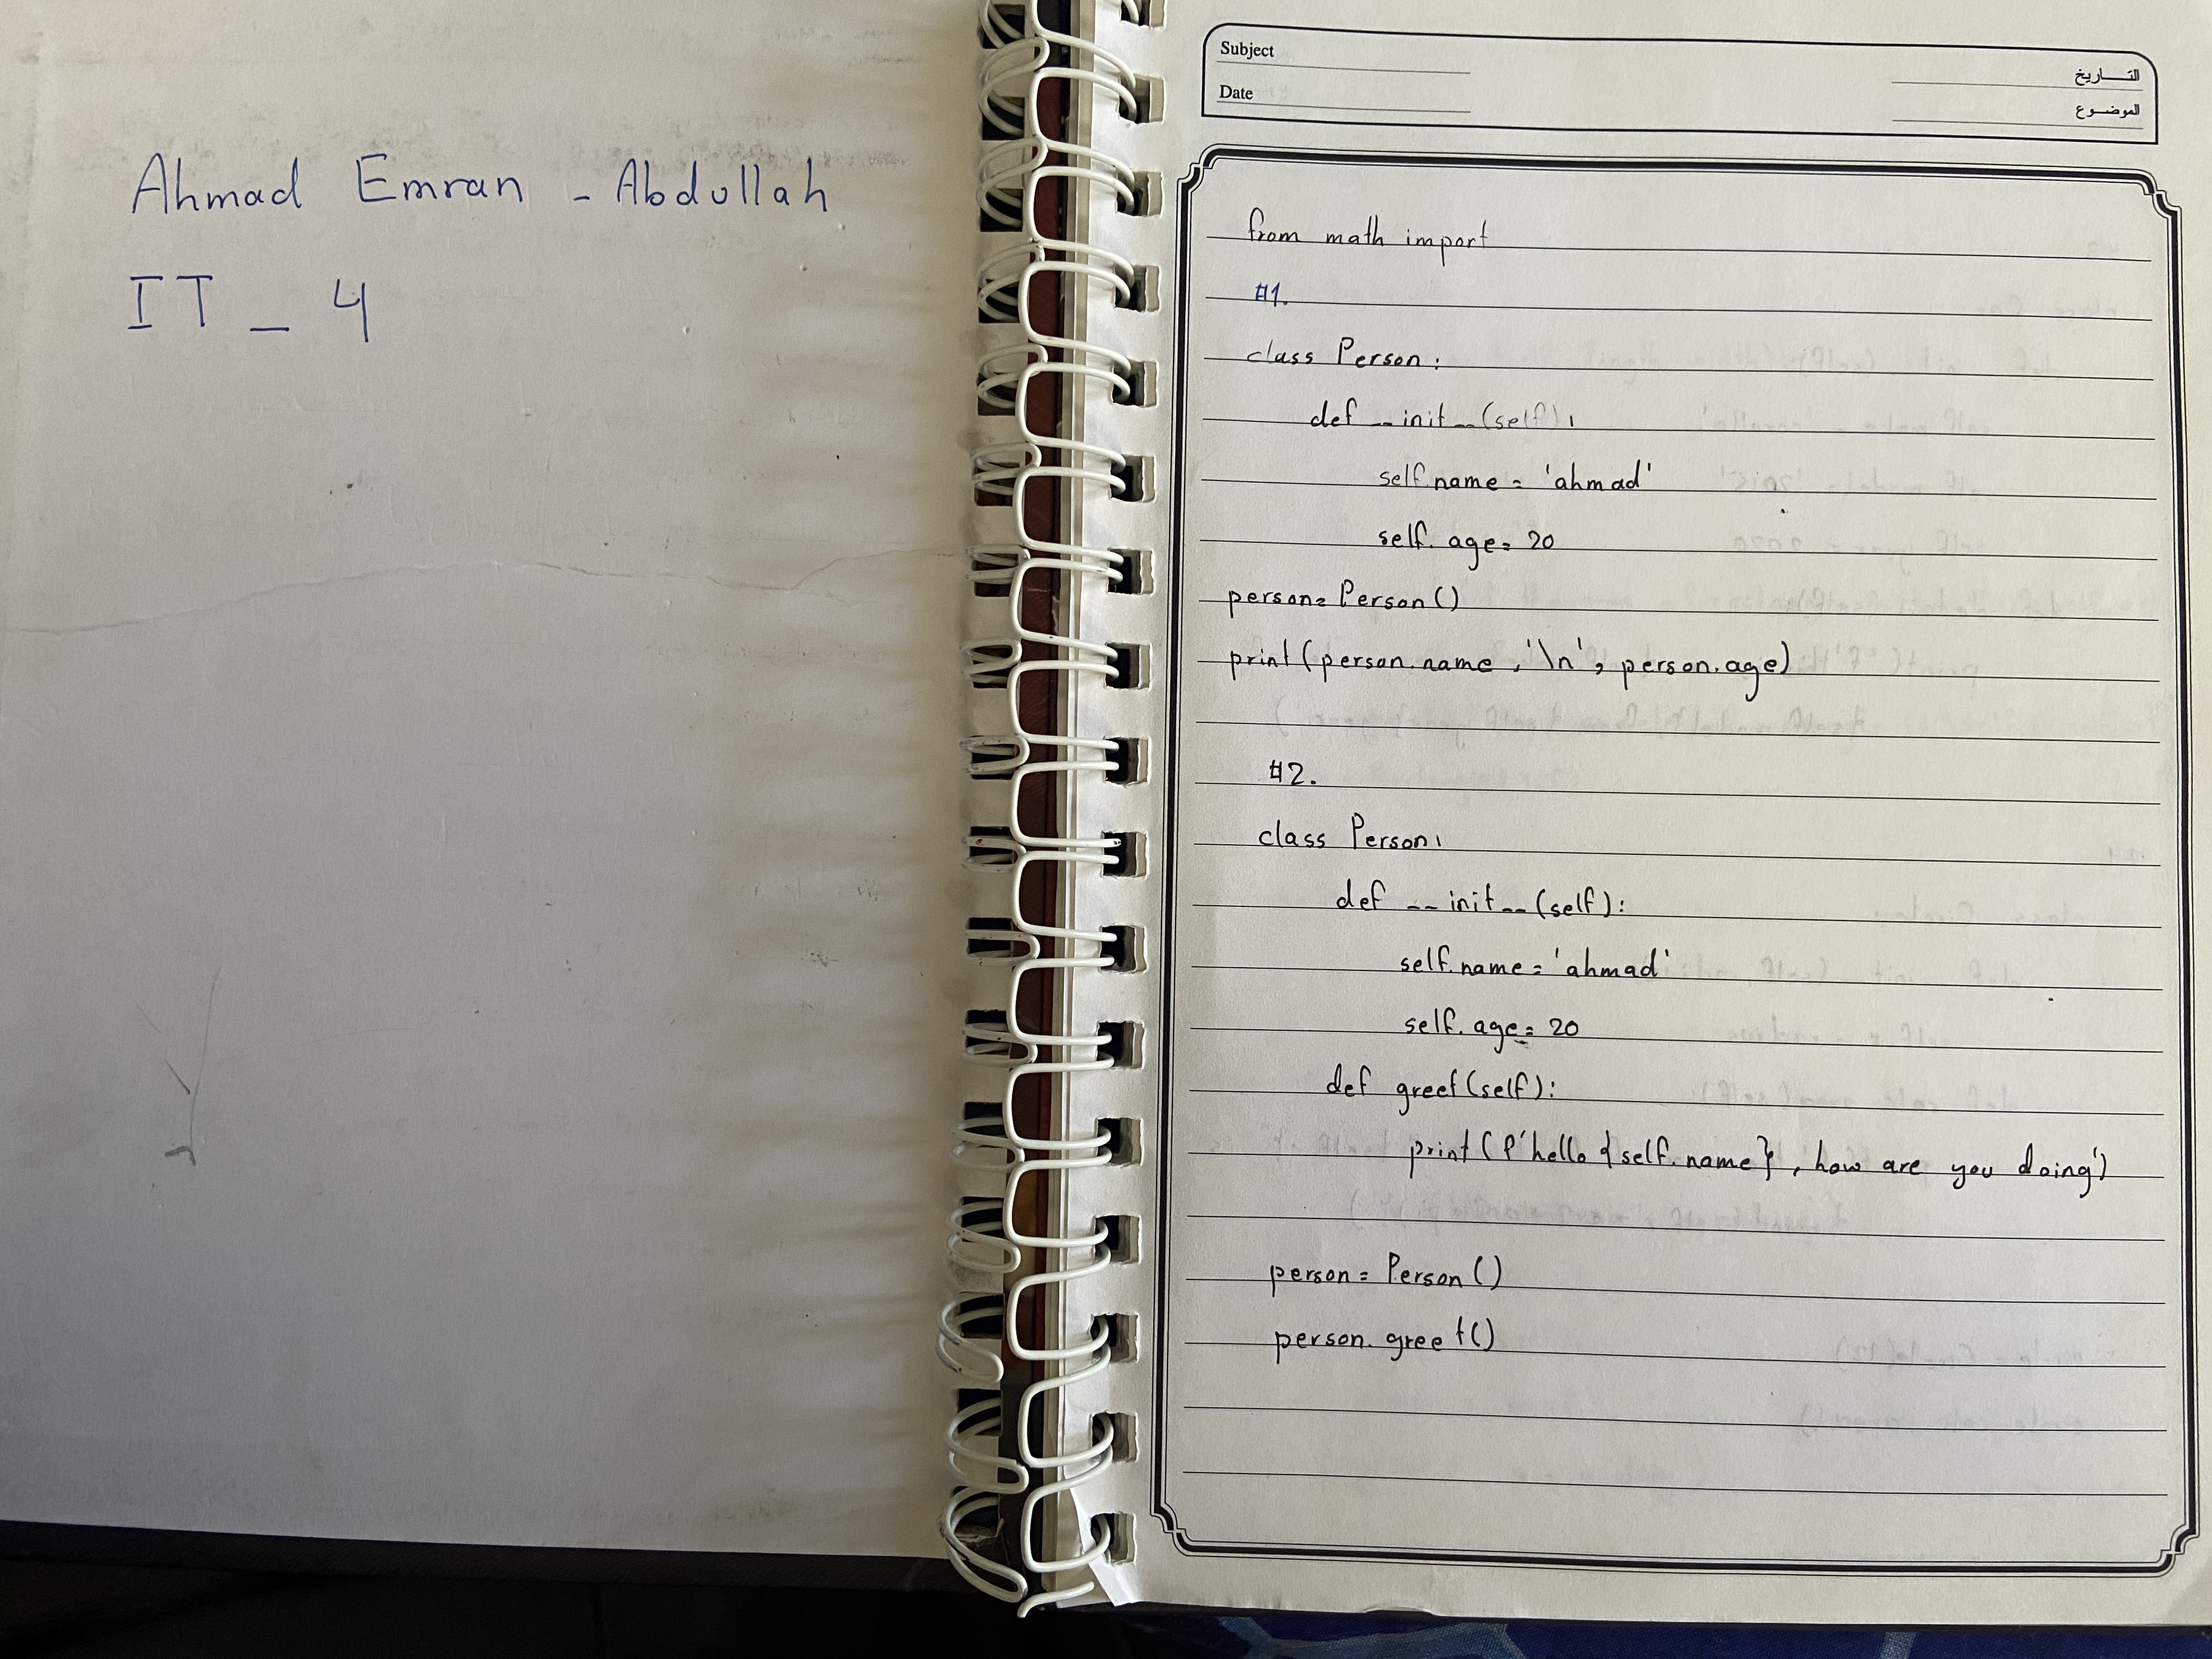 Ahmad Emran - Abdullah
IT - 4
Subject
Date
التاريخ
الموضوع
from math import
#1.
class Person:
def __init__(self):
self.name = 'ahmad'
self.age = 20
person = Person()
print(person.name, '\n', person.age)
#2.
class Person:
def __init__(self):
self.name = 'ahmad'
self.age = 20
def greet(self):
print(f'hello {self.name}, how are you doing')
person = Person()
person.greet()